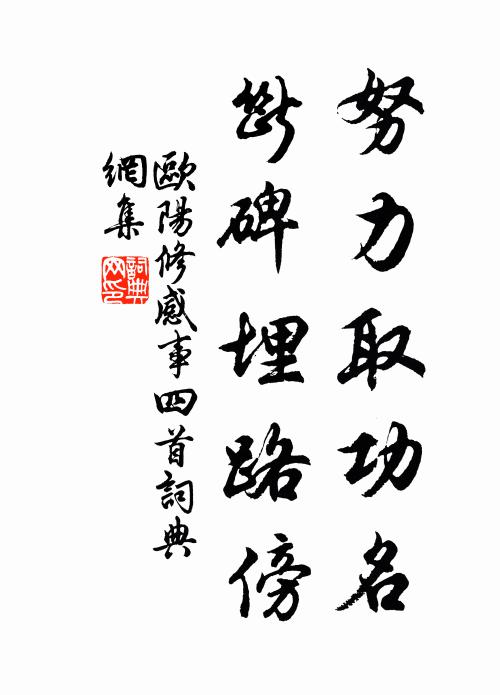 努力取功名
斷碑埋路傍
歐陽修感事四首詞典
網集
詞典網印